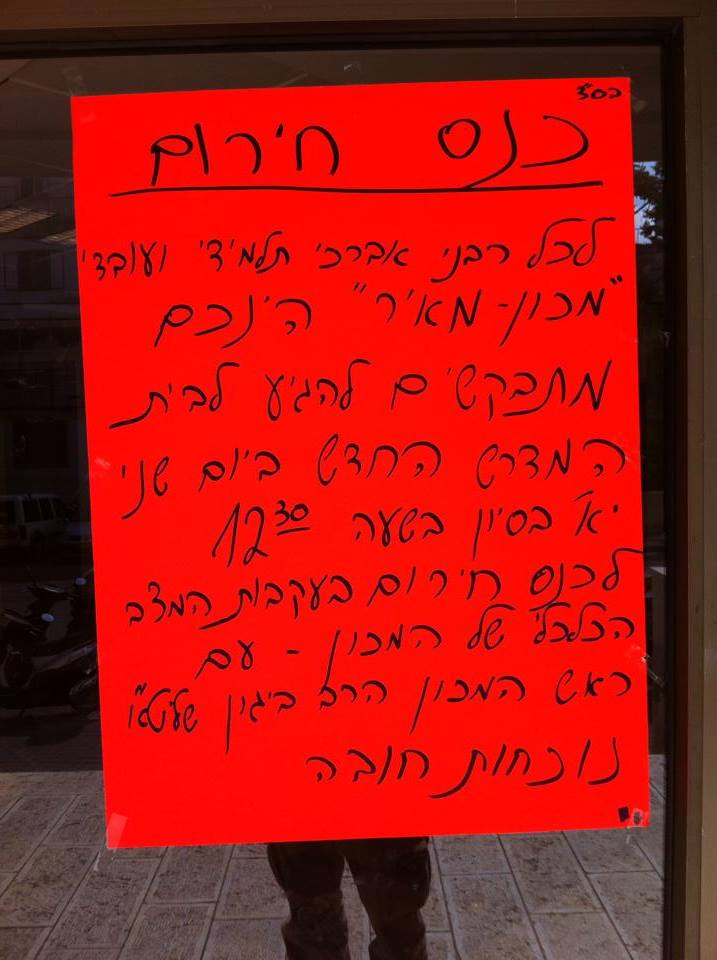 בס"ד
כנס חירום
לכל רבני אברכי תלמידי ועובדי
"מכון-מאיר" הינכם
מתבקשים להגיע לבית
המדרש החדש ביום שני
י"א בסיון בשעה 12³⁰
לכנס חירום בעקבות המצב
הכלכלי של המכון - עם
ראש המכון הרב ביגון שליט"א
נוכחות חובה